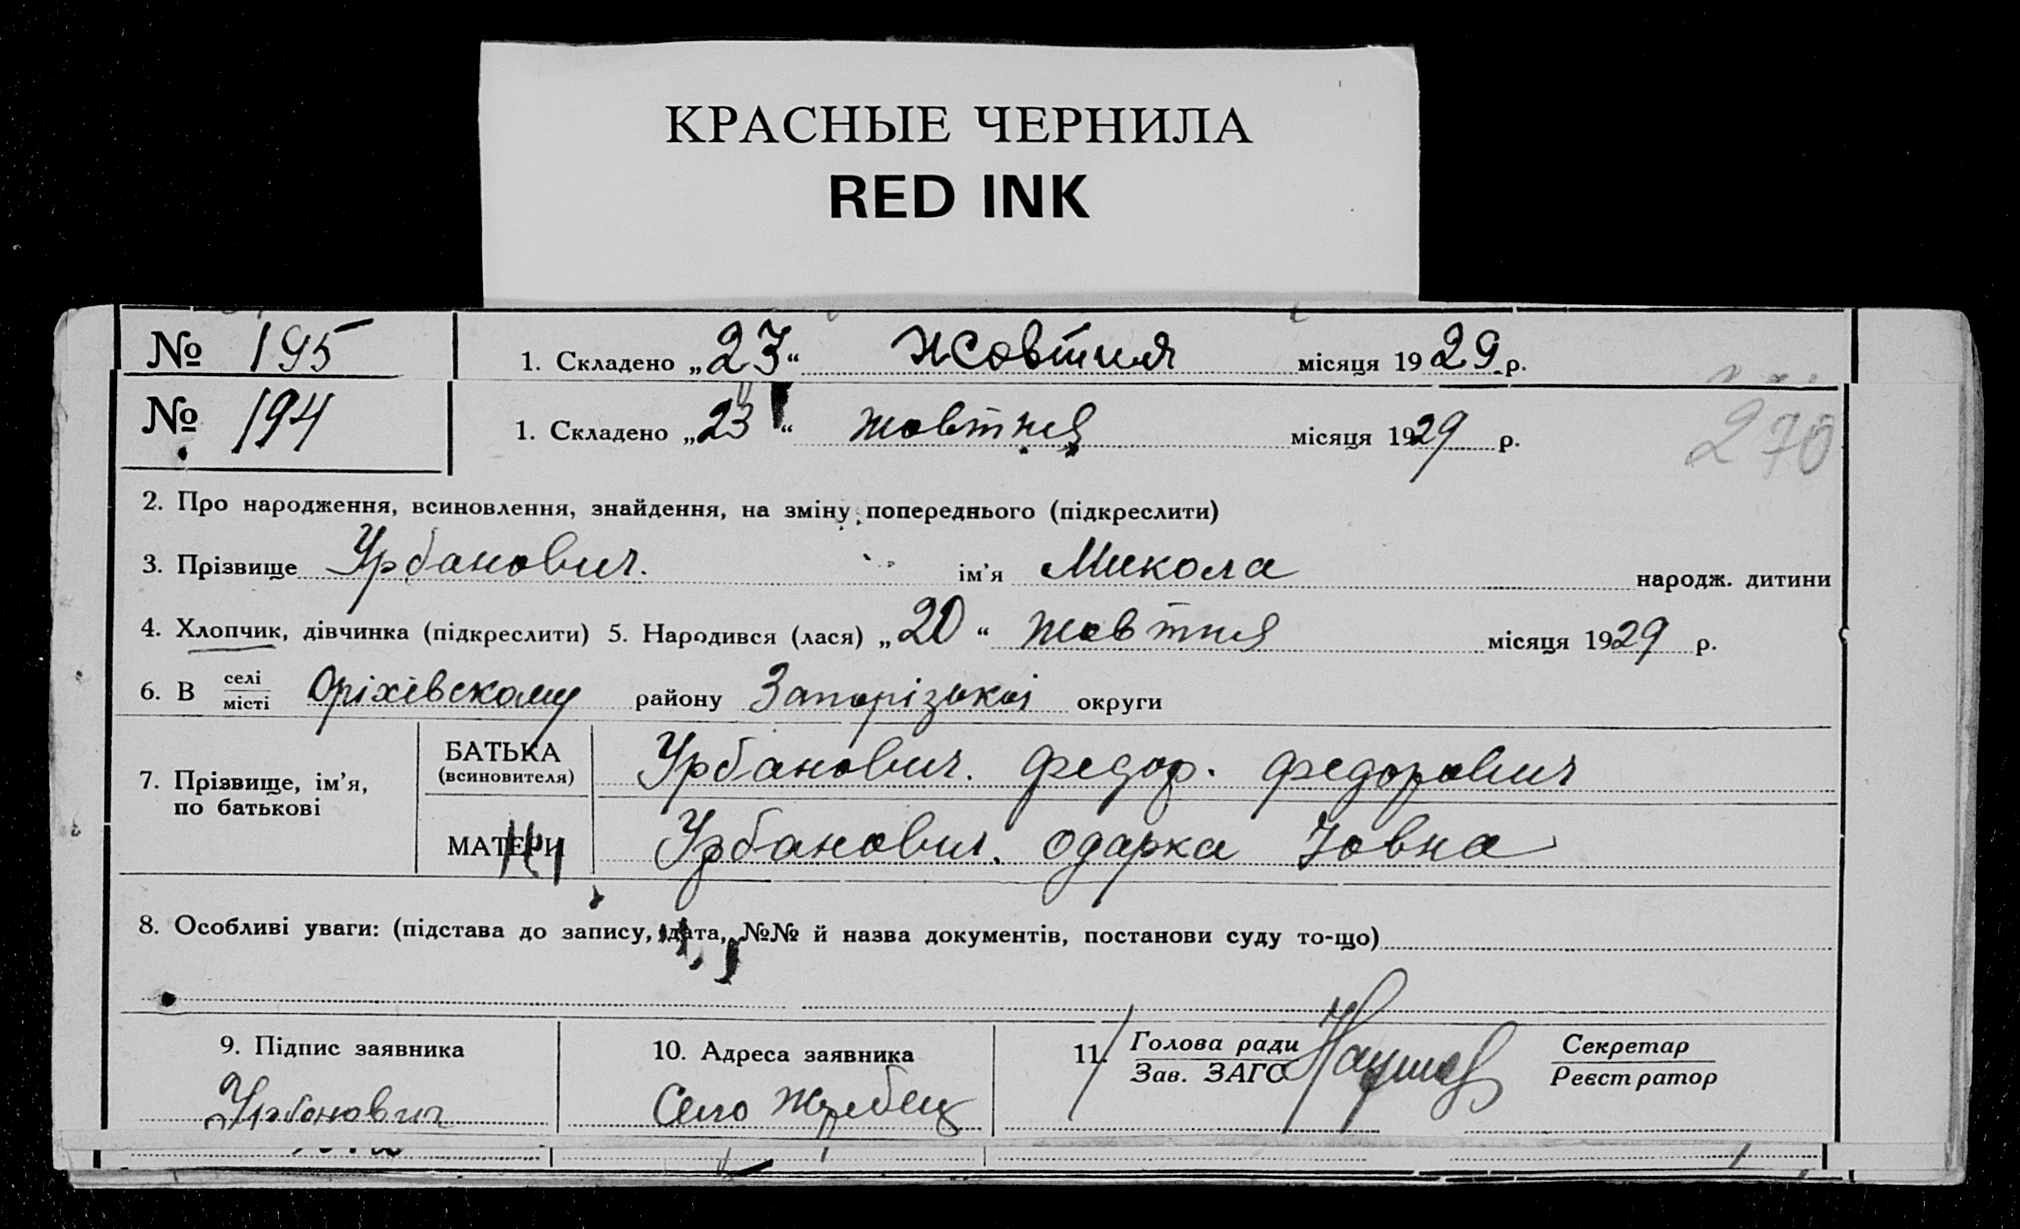 КРАСНЫЕ ЧЕРНИЛА
RED INK
№ 195 1. Складено „23“ жовтня місяця 1929 р.
№ 194 1. Складено „23“ жовтня місяця 1929 р. 270
2. Про народження, всиновлення, знайдення, на зміну попереднього (підкреслити)
3. Прізвище Урбанович. ім'я Микола народж. дитини
4. Хлопчик, дівчинка (підкреслити) 5. Народився (лася) „20“ жовтня місяця 1929 р.
6. В селі
місті Оріхівскому району Запорізькоі округи
7. Прізвище, ім'я,
по батькові
БАТЬКА
(всиновителя) Урбанович. Федор. Федорович
МАТЕРИ Урбанович. Одарка Іовна
8. Особливі уваги: (підстава до запису, дата, №№ й назва документів, постанови суду то-що)
9. Підпис заявника
Урбанович
10. Адреса заявника
Село Жеребец
11. Голова ради
Зав. ЗАГС
Секретар
Реєстратор